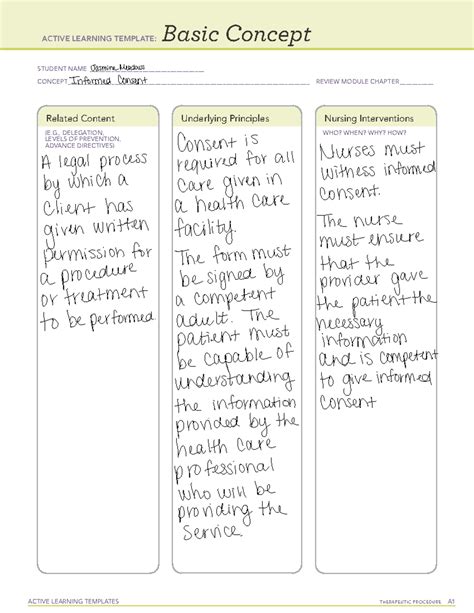 ACTIVE LEARNING TEMPLATE: Basic Concept
STUDENT NAME Jasmine Meadows
CONCEPT Informed Consent REVIEW MODULE CHAPTER
Related Content
(E.G., DELEGATION,
LEVELS OF PREVENTION,
ADVANCE DIRECTIVES)
A legal process
by which a
client has
given written
permission for
a procedure
or treatment
to be performed
Underlying Principles
Consent is
required for all
care given in
a health care
facility.
The form must
be signed by
a competent
adult. The
patient must
be capable of
understanding
the information
provided by the
health care
professional
who will be
providing the
service.
Nursing Interventions
WHO? WHEN? WHY? HOW?
Nurses must
witness informed
consent.
The nurse
must ensure
that the
provider gave
the patient the
necessary
information
and is competent
to give informed
consent
ACTIVE LEARNING TEMPLATES THERAPEUTIC PROCEDURE A1